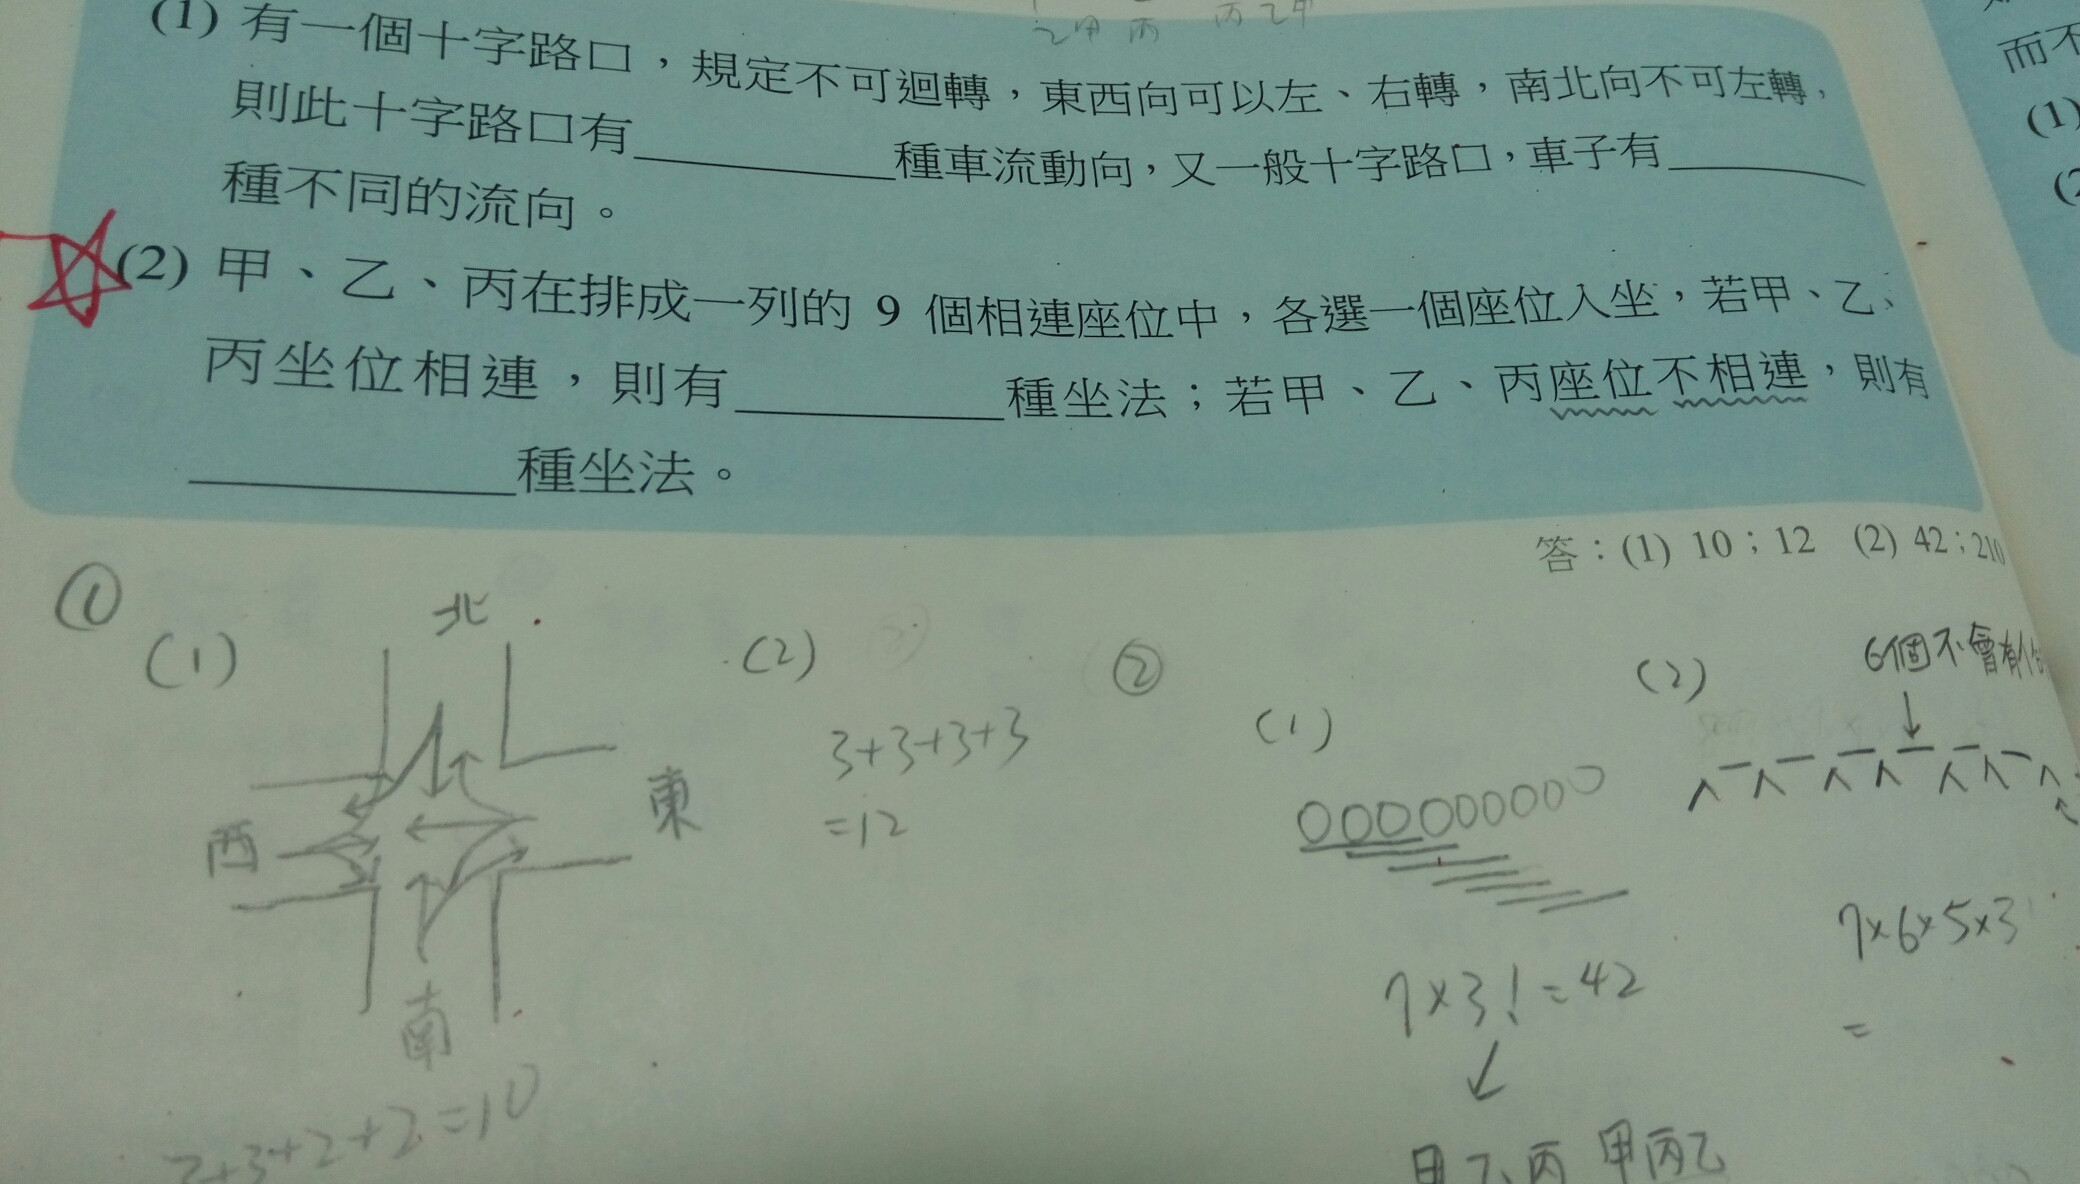 乙甲丙 丙乙甲
(1) 有一個十字路口，規定不可迴轉，東西向可以左、右轉，南北向不可左轉，
則此十字路口有＿＿＿＿種車流動向，又一般十字路口，車子有＿＿＿＿
種不同的流向。
(2) 甲、乙、丙在排成一列的 9 個相連座位中，各選一個座位入坐，若甲、乙、
丙坐位相連，則有＿＿＿＿種坐法；若甲、乙、丙座位不相連，則有
＿＿＿＿種坐法。
答：(1) 10；12 (2) 42；210
而不
(1)
(2
①
(1)
北
西
東
南
3+2+2=10
(2)
3+3+3+3
=12
②
(1)
7×3!=42
甲乙丙 甲丙乙
(2)
6個不會有
7×6×5×3
=